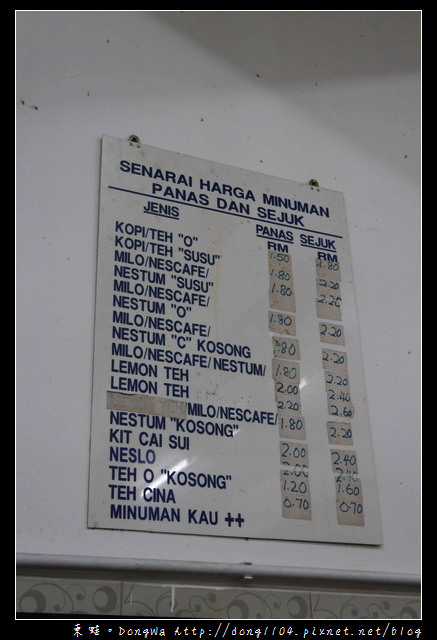 SENARAI HARGA MINUMAN
PANAS DAN SEJUK
JENIS PANAS SEJUK
RM RM
KOPI/TEH "O" 1.50 1.80
KOPI/TEH "SUSU" 1.80 2.20
MILO/NESCAFE/
NESTUM "SUSU" 1.80 2.20
MILO/NESCAFE/
NESTUM "O" 1.80 2.20
MILO/NESCAFE/
NESTUM "C" KOSONG 1.80 2.20
MILO/NESCAFE/NESTUM/
LEMON TEH 1.80 2.20
LEMON TEH 2.00 2.40
MILO/NESCAFE/ 2.20 2.60
NESTUM "KOSONG" 1.80 2.20
KIT CAI SUI
NESLO 2.00 2.40
TEH O "KOSONG" 1.20 1.60
TEH CINA 0.70 0.70
MINUMAN KAU ++
東蛙。DongWa http://dong1104.pixnet.net/blog